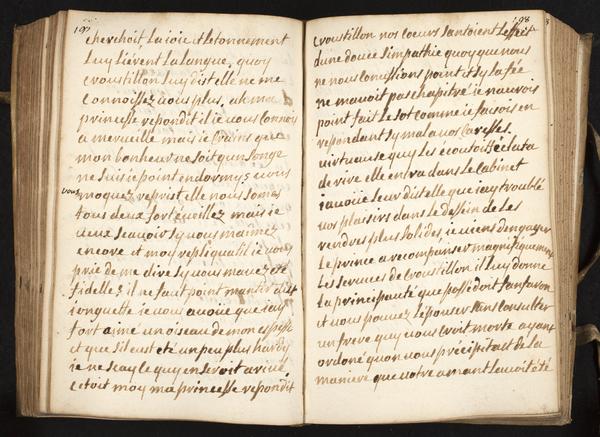 197
cherchoit la ioie et letonnement
luy liérent la langue, quoy
croustillon luy dit elle ne me
connoissez vous plus, ah ma
princesse repondit il ie vous connois
a merveille mais ie crains que
mon bonheur ne soit qun songe
ne suis ie point endormy,
vous moquez reprist elle nous somes
tous deux fort éveillez mais ie
veux scavoir sy vous maimez
encore et moy repliqua til ie vous
prie de me dire sy vous mavez été
fidelle, il ne faut point mantir dit
ionquette ie vous avoue que iay
fort aimé un oiseau de mon espese
et que sil eust eté un peu plus hardy
ie ne scay le quy en seroit arivé,
cetoit moy ma princesse repondit
198
croustillon nos coeurs santoient leffeit
dune douce simpathie quoy que nous
ne nous conussions point et sy la fée
ne mavoit pas chapitré ie naurois
point fait le sot comme ie faisois en
repondant sy mal a vos caresses.
virtueuse quy les écoutoit éclata
de rire elle entra dans le cabinet
iavoüe leur dit elle que iay troublé
vos plaisirs dans le dessein de les
rendres plus solides, ie viens dengager
le prince a recompanser magnifiquement
les services de croustillon il luy donne
la principauté que possedoit fanfaron
et vous pouvez lépouser sans consulter
un frere quy vous croit morte ayant
ordoné quon vous précipitast de la
maniere que votre amant lavoit été